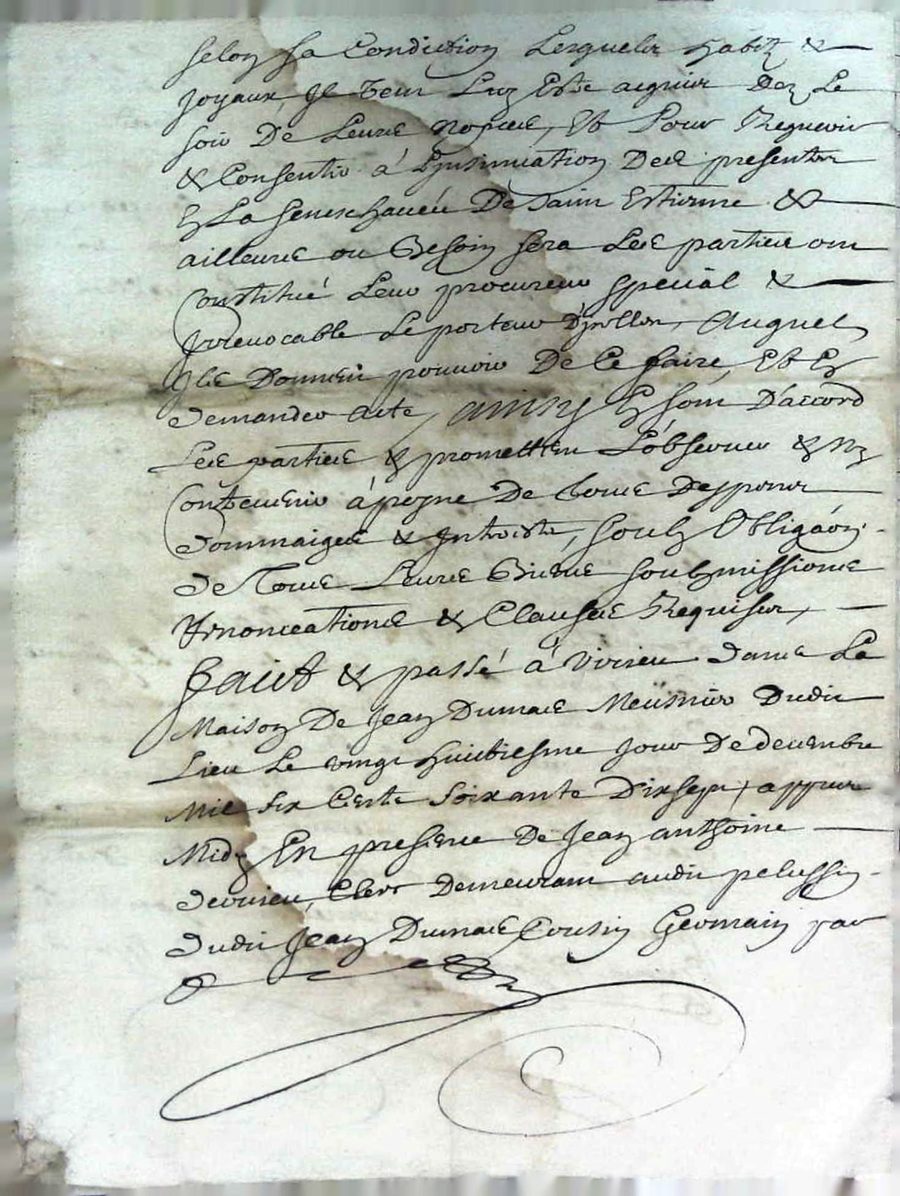 selon sa Condiction Lesquels habitz &
Joyaux, Il Veut Luy Estre acquis Dez Le
soir De Leurs nopces, Et Pour Requerir
& Consentir à L'Insinuation Des presentes
En La seneschaucée De Saint Estienne &
ailleurs ou Besoin sera Les parties ont
Constitué Leur procureur special &
Irrevocable Le porteur D'jcelles, Auquel
Ils Donnent pouvoir De Ce faire, Et En
demander Acte, ainsy En sont D'accord
Les parties & promettent L'observer & n'y
Contrevenir à peyne De tous Despens
dommaiges & Interestz, soubz Obligāon
de Tous Leurs Biens soubzmissions
Renonciations & Clauses Requises,
Faict & passé à Virieu dans La
Maison De Jean Dumas Meusnier Dudit
Lieu Le vingt huictiesme jour De decembre
Mil six Cents soixante Dixsept, appres
Midy En presence De Jean anthoine
devirieu, Clerc Demeurant audit pelussin
dudit Jean Dumas Cousin Germain par